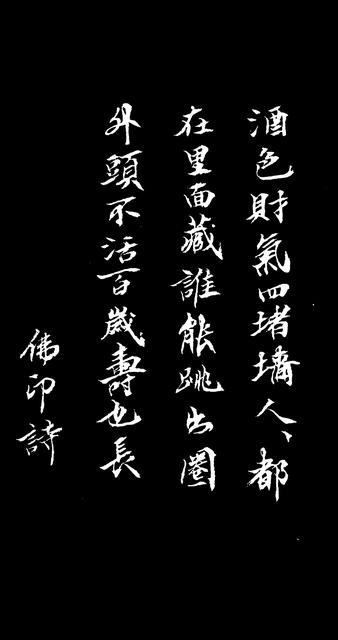 酒色財氣四堵墻人人都
在里面藏誰能跳出圈
外頭不活百歲壽也長
佛印詩